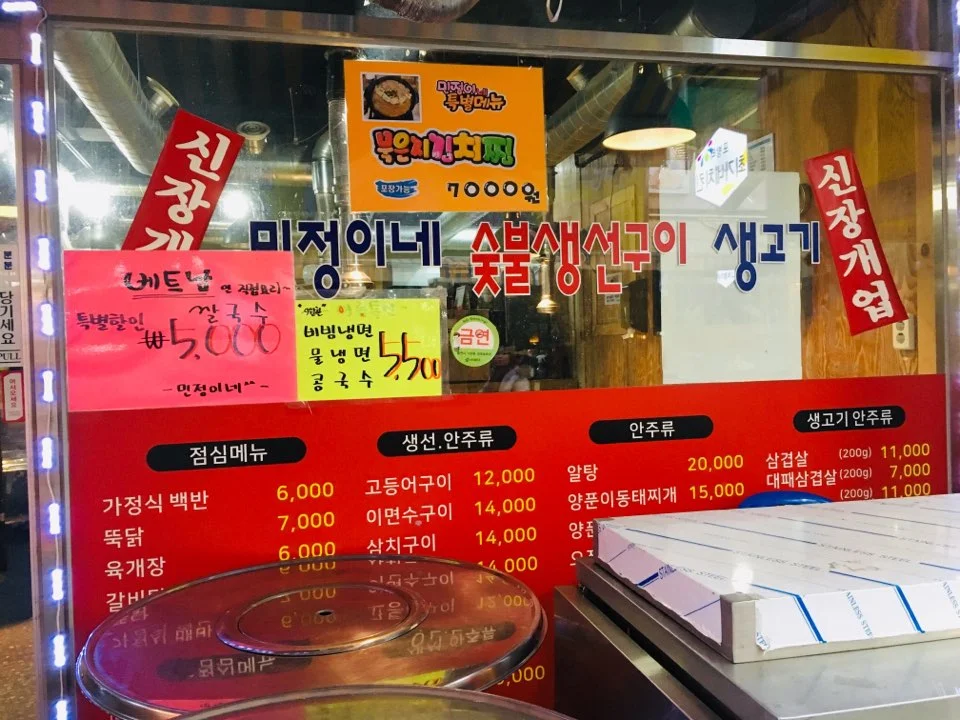 민정이네
특별메뉴
묵은지김치찌
포장가능
7000원
신장개
신장개업
민정이네 숯불생선구이 생고기
최가네치킨
베트남
쌀국수
특별할인
₩5,000
-민정이네-
비빔냉면
물냉면
콩국수
5,500
금연
당기세요
PULL
점심메뉴
가정식 백반 6,000
뚝닭 7,000
육개장 6,000
생선.안주류
고등어구이 12,000
이면수구이 14,000
삼치구이 14,000
14,000
안주류
알탕 20,000
양푼이동태찌개 15,000
생고기 안주류
삼겹살 (200g) 11,000
대패삼겹살 (200g) 7,000
(200g) 11,000
STAINLESS STEEL